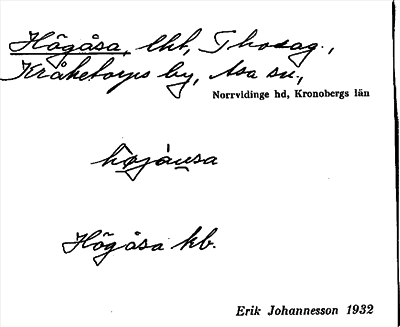 Högåsa, lht, Thosag.,
Kråketorps by, Asa sn.,
Norrvidinge hd, Kronobergs län
Högåsa kb.
Erik Johannesson 1932